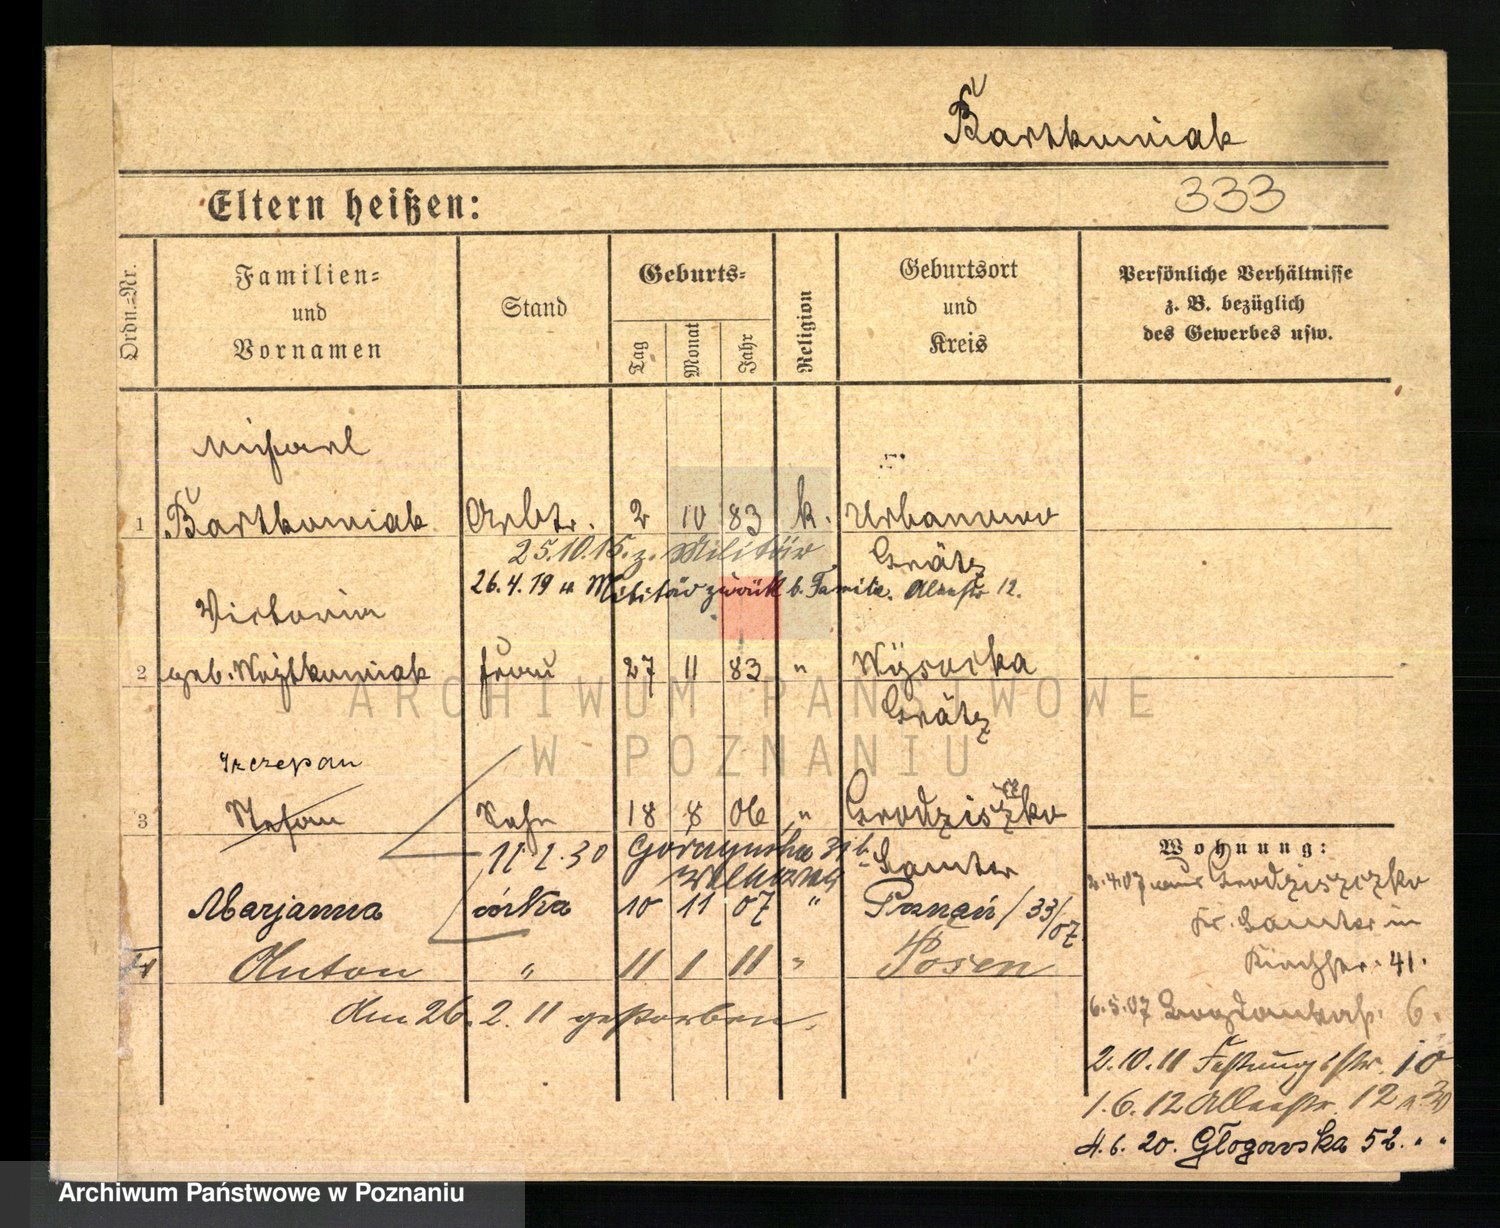 Bartkowiak
Eltern heißen:
333
Ordn.-Nr.
Familien-
und
Vornamen
Stand
Geburts-
Tag
Monat
Jahr
Religion
Geburtsort
und
Kreis
Persönliche Verhältnisse
z. B. bezüglich
des Gewerbes usw.
Michael
1 Bartkowiak Arbtr. 2 10 83 k. Urbanowo
25.10.15. z. Militär Grätz
26.4.19 v Militär zurück b. Familie. Alleestr 12.
Victoria
2 geb. Wojtkowiak Frau 27 11 83 " Wysocka
Grätz
ARCHIWUM PAŃSTWOWE
W POZNANIU
Szczepan
3 Stefan Sohn 18 8 06 " Grodziszko
11.2.30 Górczyńska 31 b. Samter
Marjanna córka 10 11 07 " Poznań / 33/07
4 Anton " 11 1 11 " Posen
Am 26.2.11 gestorben.
Wohnung:
2.4.07 aus Grodziszczko
Kr. Samter in
Kirchstr. 41.
6.5.07 6.
2.10.11 Festungsstr. 10
1.6.12 Alleestr. 12
4.6.20. Głogowska 52. " "
Archiwum Państwowe w Poznaniu